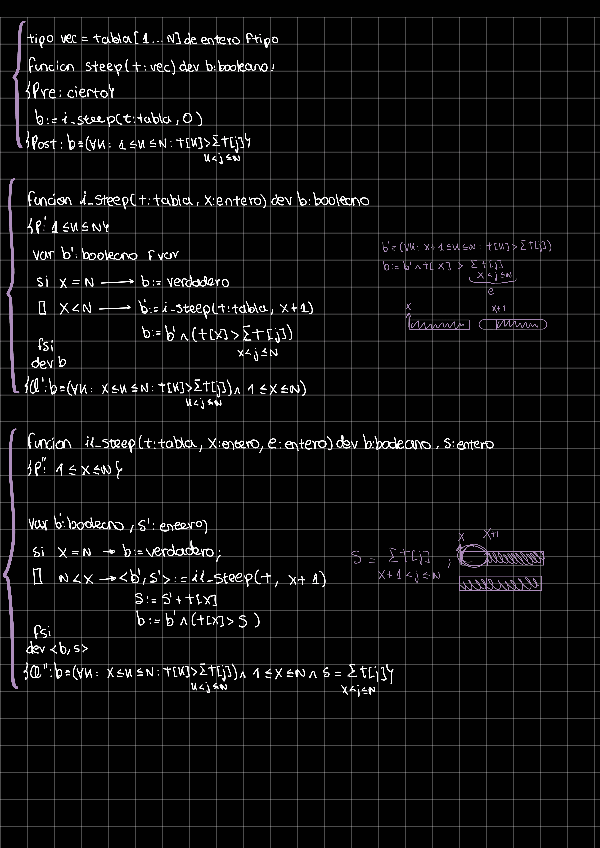 tipo vec = tabla[1...N] de entero ftipo
funcion steep(t: vec) dev b:booleano;
{Pre: cierto}
b:= i_steep(t:tabla, 0)
{Post: b=(∀u: 1≤u≤N: t[u]>Σt[j]}
u<j≤N
funcion i_steep(t:tabla, x:entero) dev b:booleano
{P': 1≤u≤N}
var b': booleano fvar
si x=N → b:= verdadero
[] x<N → b':= i_steep(t:tabla, x+1)
b:= b'∧(t[x]>Σt[j])
x<j≤N
fsi
dev b
{Q': b=(∀u: x≤u≤N: t[u]>Σt[j])∧ 1≤x≤N)
u<j≤N
b'=(∀u: x+1≤u≤N: t[u]>Σt[j])
b:= b'∧t[x] > Σt[j]
x<j≤N
e
x x+1
funcion ii_steep(t:tabla, x:entero, e:entero) dev b:booleano, s:entero
{P'': 1≤x≤N}
var b':booleano, s': entero)
si x=N → b:=verdadero;
[] N<x → <b',s'>:= ii_steep(t, x+1)
s:= s'+t[x]
b:= b'∧(t[x]>s)
fsi
dev <b,s>
{Q'': b=(∀u: x≤u≤N: t[u]>Σt[j])∧ 1≤x≤N ∧ s=Σt[j]}
u<j≤N x<j≤N
s = Σt[j];
x+1<j≤N
x x+1